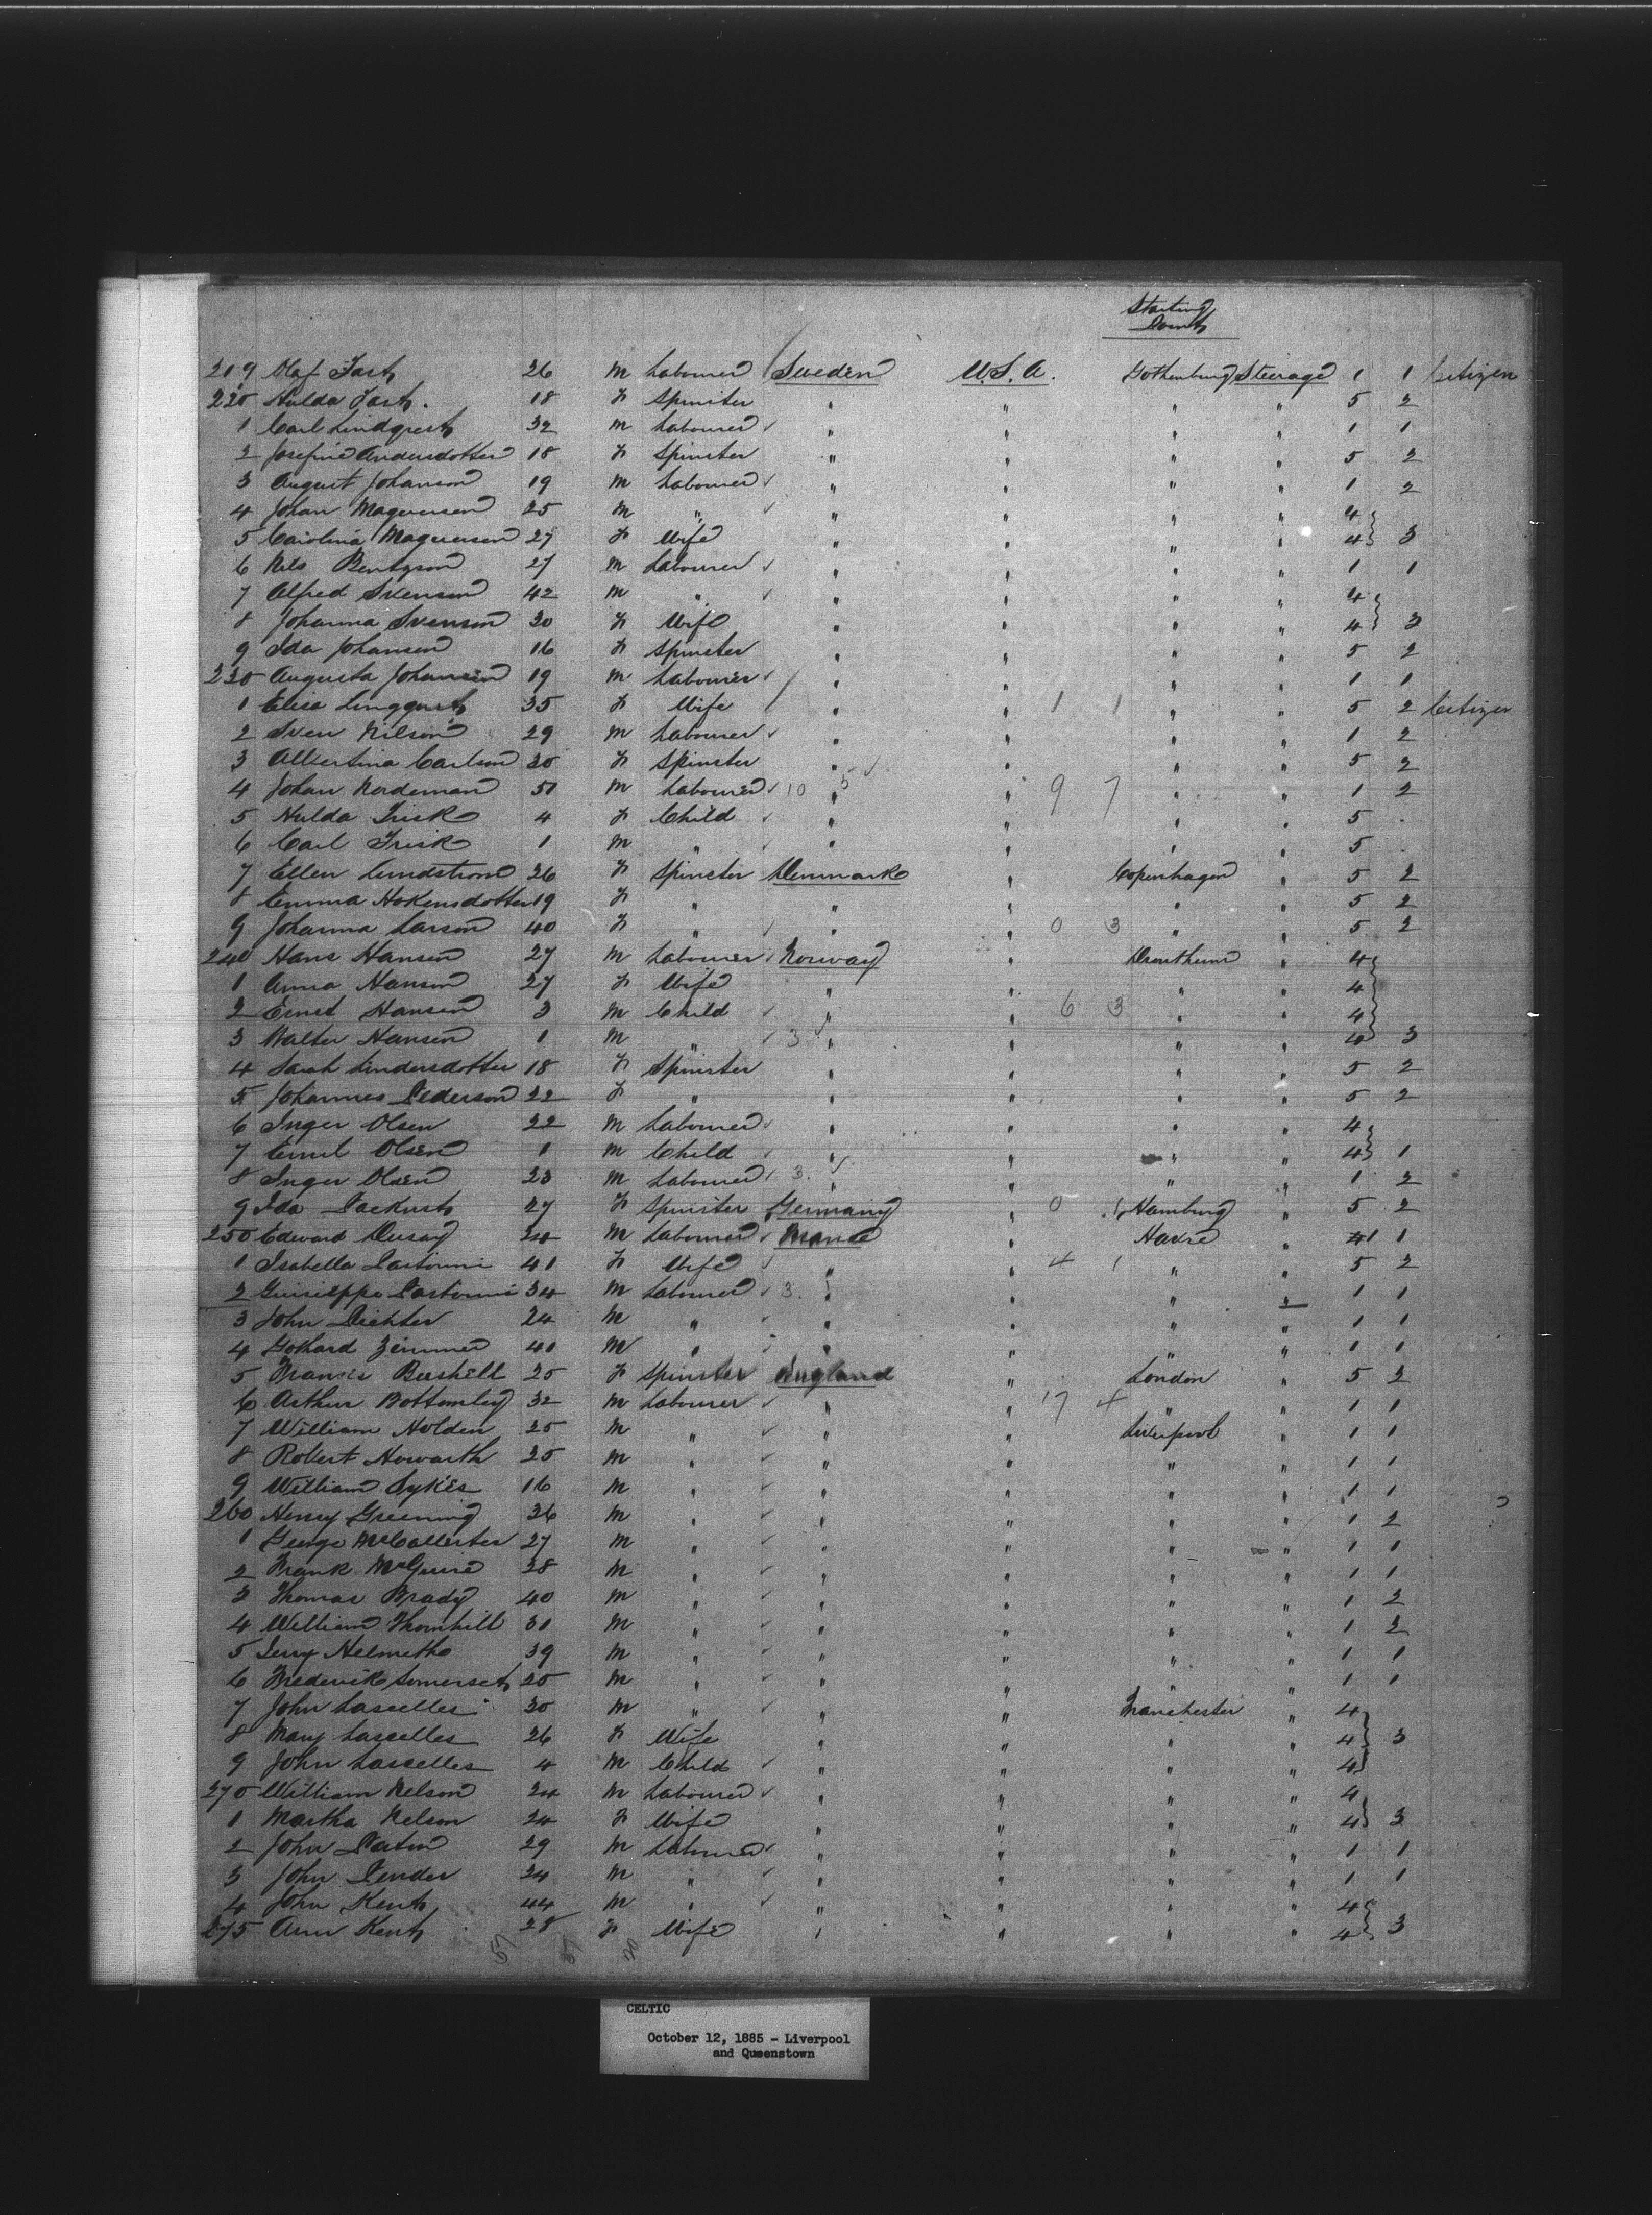 Starting
Point
219 Olaf Fast 26 M Labourer Sweden U.S.A. Gothenburg Steerage 1 1 Citizen
220 Hulda Fast. 18 F Spinster " " " " 5 2
1 Carl Lindqvist 32 M Labourer " " " " 1 1
2 Josefine Andersdotter 18 F Spinster " " " " 5 2
3 August Johanson 19 M Labourer " " " " 1 2
4 Johan Magnusen 25 M " " " " " 4
5 Carolina Magnusen 27 F Wife " " " " 4 3
6 Nels Bentzson 27 M Labourer " " " " 1 1
7 Alfred Svenson 42 M " " " " " 4
8 Johanna Svenson 30 F Wife " " " " 4 3
9 Ida Johansen 16 F Spinster " " " " 5 2
230 Augusta Johansen 19 M Labourer " " " " 1 1
1 Elisa Lingquist 35 F Wife " " 1 1 " " 5 2 Citizen
2 Sven Nilson 29 M Labourer " " " " 1 2
3 Albertina Carlson 30 F Spinster " " " " 5 2
4 Johan Nordeman 51 M Labourer 10 5 " " 9 7 " " 1 2
5 Hulda Frisk 4 F Child " " " " 5
6 Carl Frisk 1 M " " " " " 5
7 Ellen Lundstrom 26 F Spinster Denmark " Copenhagen " 5 2
8 Emma Hokensdotter 19 F " " " " " 5 2
9 Johanna Larson 40 F " " " 0 3 " " 5 2
240 Hans Hansen 27 M Labourer Norway " Drontheim " 4
1 Anna Hanson 27 F Wife " " " " 4
2 Ernst Hansen 3 M Child " " 6 3 " " 4
3 Walter Hansen 1 M " 3 " " " " 4 3
4 Sarah Lindersdotter 18 F Spinster " " " " 5 2
5 Johannes Pederson 22 F " " " " " 5 2
6 Inger Olsen 22 M Labourer " " " " 4
7 Emil Olsen 1 M Child " " " " 4 1
8 Inger Olsen 23 M Labourer 3 " " " " 1 2
9 Ida 27 F Spinster Germany " 0 1 Hamburg " 5 2
250 Edward 24 M Labourer France " Havre " 1 1
1 Isabella 41 F Wife " " 4 1 " " 5 2
2 34 M Labourer 3 " " " " 1 1
3 John Richter 24 M " " " " " 1 1
4 Gothard Zimmer 40 M " " " " " 1 1
5 Francis Bushell 25 F Spinster England " London " 5 2
6 Arthur Bottomley 32 M Labourer " " 17 4 " " 1 1
7 William Holden 25 M " " " Liverpool " 1 1
8 Robert Howarth 25 M " " " " " 1 1
9 William Sykes 16 M " " " " " 1 1
260 Henry Greening 36 M " " " " " 1 2
1 George McCallester 27 M " " " " " 1 1
2 Frank McGuire 28 M " " " " " 1 1
3 Thomas Brady 40 M " " " " " 1 2
4 William Thornhill 31 M " " " " " 1 2
5 Helmuth 39 M " " " " " 1 1
6 Frederick Somerset 25 M " " " " " 1 1
7 John Lascelles 30 M " " " Manchester " 4
8 Mary Lascelles 26 F Wife " " " " 4 3
9 John Lascelles 4 M Child " " " " 4
270 William Nelson 24 M Labourer " " " " 4
1 Martha Nelson 24 F Wife " " " " 4 3
2 John 29 M Labourer " " " " 1 1
3 John Pender 24 M " " " " " 1 1
4 John Kent 44 M " " " " " 4
275 Ann Kent 28 F Wife " " " " 4 3
CELTIC
October 12, 1885 - Liverpool
and Queenstown